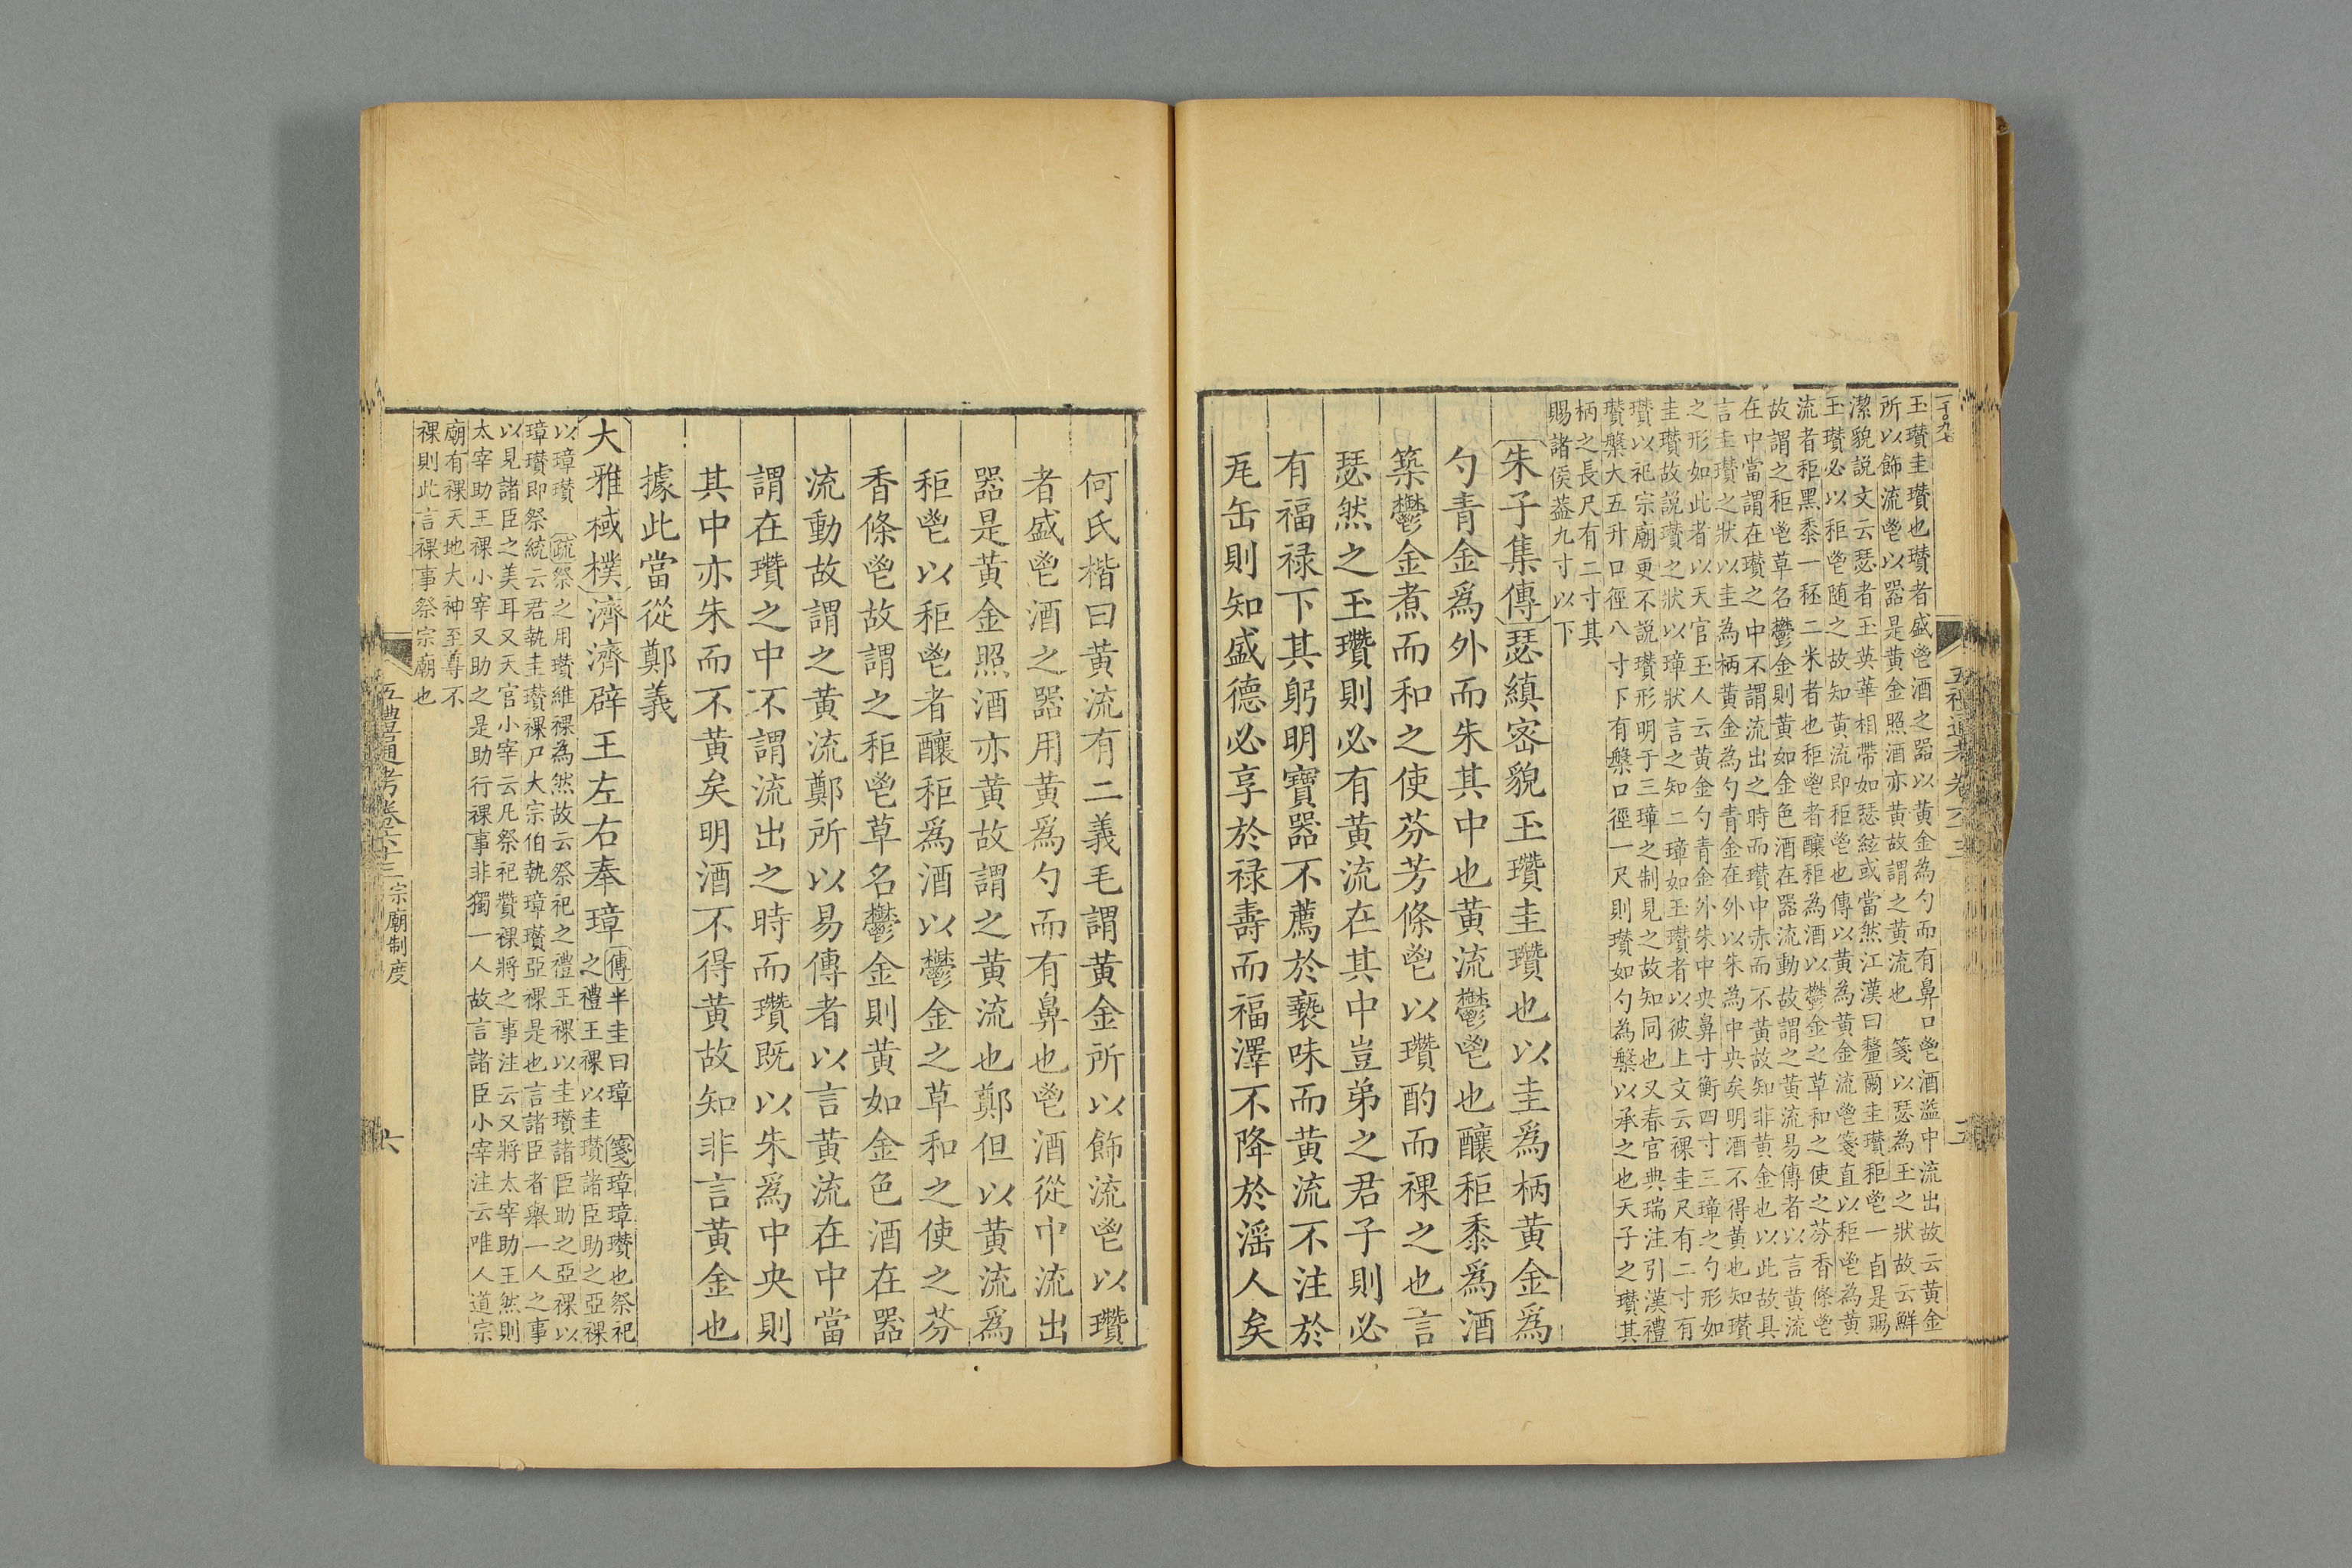 玉瓚圭瓚也瓚者盛鬯酒之器以黃金為勺而有鼻口鬯酒從中流出故云黃金
所以飾流鬯以器是黃金照酒亦黃故謂之黃流也　箋以瑟為玉之狀故云鮮
潔貌説文云瑟者玉英華相帶如瑟絃或當然江漢曰釐爾圭瓚秬鬯一卣是賜
玉瓚必以秬鬯随之故知黃流即秬鬯也傳以黃為黃金流鬯箋直以秬鬯為黃
流者秬黑黍一秠二米者也秬鬯者釀秬為酒以鬱金之草和之使之芬香條鬯
故謂之秬鬯草名鬱金則黃如金色酒在器流動故謂之黃流易傳者以言黃流
在中當謂在瓚之中不謂流出之時而瓚中赤而不黃故知非黃金也以此故具
言圭瓚之狀以圭為柄黃金為勺青金在外以朱為中央矣明酒不得黃也知瓚
之形如此者以天官玉人云黃金勺青金外朱中央鼻寸衡四寸三璋之勺形如
圭瓚故説瓚之狀以璋狀言之知二璋如玉瓚者以彼上文云祼圭尺有二寸有
瓚以祀宗廟更不説瓚形明于三璋之制見之故知同也又春官典瑞注引漢禮
瓚槃大五升口徑八寸下有槃口徑一尺則瓚如勺為槃以承之也天子之瓚其
柄之長尺有二寸其
賜諸侯葢九寸以下
朱子集傳瑟縝宻貌玉瓚圭瓚也以圭爲柄黃金爲
勺青金爲外而朱其中也黃流鬱鬯也釀秬黍爲酒
築鬱金煮而和之使芬芳條鬯以瓚酌而祼之也言
瑟然之玉瓚則必有黃流在其中豈弟之君子則必
有福禄下其躬明寶器不薦於褻味而黃流不注於
瓦缶則知盛德必享於禄壽而福澤不降於滛人矣
何氏楷曰黃流有二義毛謂黃金所以飾流鬯以瓚
者盛鬯酒之器用黃爲勺而有鼻也鬯酒從中流出
器是黃金照酒亦黃故謂之黃流也鄭但以黃流爲
秬鬯以秬鬯者釀秬爲酒以鬱金之草和之使之芬
香條鬯故謂之秬鬯草名鬱金則黃如金色酒在器
流動故謂之黃流鄭所以易傳者以言黃流在中當
謂在瓚之中不謂流出之時而瓚既以朱爲中央則
其中亦朱而不黃矣明酒不得黃故知非言黃金也
據此當從鄭義
大雅棫樸濟濟辟王左右奉璋傳半圭曰璋　箋璋璋瓚也祭祀
之禮王祼以圭瓚諸臣助之亞祼
以璋瓚　疏祭之用瓚維祼為然故云祭祀之禮王祼以圭瓚諸臣助之亞祼以
璋瓚即祭統云君執圭瓚祼尸大宗伯執璋瓚亞祼是也言諸臣者舉一人之事
以見諸臣之美耳又天官小宰云凡祭祀贊祼將之事注云又將太宰助王然則
太宰助王祼小宰又助之是助行祼事非獨一人故言諸臣小宰注云唯人道宗
廟有祼天地大神至尊不
祼則此言祼事祭宗廟也
五禮通考卷六十三　宗廟制度
六